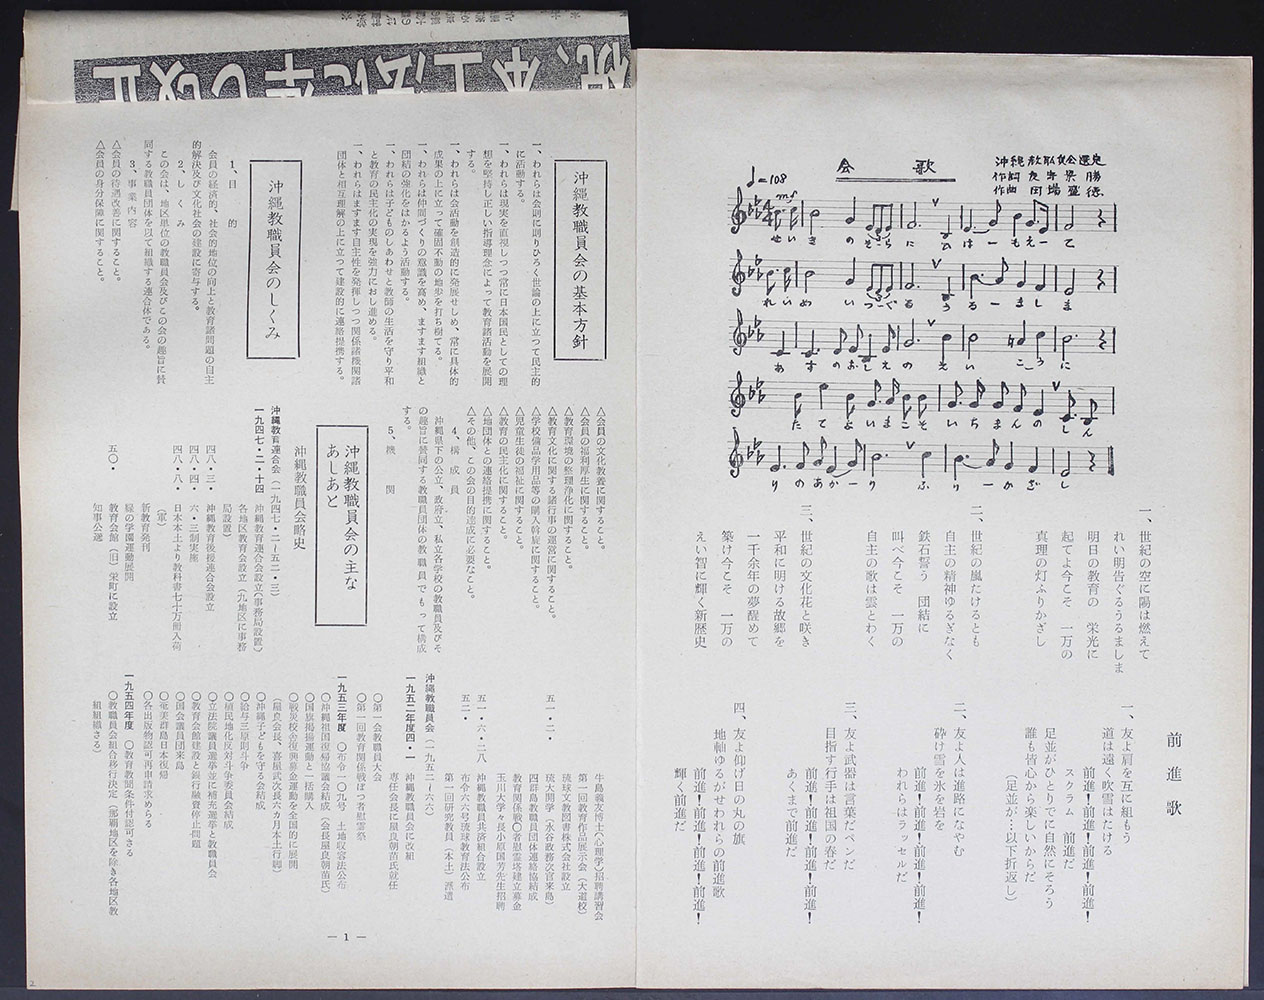 祝、本土法に準じ改正
会歌
沖縄教職員会選定
♩=108
mf
せいきのそーらにひはーもえーて
れいめいつーぐるうるーましま
あすのおしえのえいこうに
たてよいまこそいちまんのしん
りのあかーりふりーかざし
一、世紀の空に陽は燃えて
れい明告ぐるうるましま
明日の教育の 栄光に
起てよ今こそ 一万の
真理の灯ふりかざし
二、世紀の嵐たけるとも
自主の精神ゆるぎなく
鉄石誓う 団結に
叫べ今こそ 一万の
自主の歌は雲とわく
三、世紀の文化花と咲き
平和に明ける故郷を
一千余年の夢醒めて
築け今こそ 一万の
えい智に輝く新歴史
前進歌
一、友よ肩を互に組もう
道は遠く吹雪はたける
前進！前進！前進！前進！
スクラム 前進だ
足並がひとりでに自然にそろう
誰も皆心から楽しいからだ
（足並が…以下折返し）
二、友よ人は進路になやむ
砕け雪を氷を岩を
前進！前進！前進！前進！
われらはラッセルだ
三、友よ武器は言葉だペンだ
目指す行手は祖国の春だ
前進！前進！前進！前進！
あくまで前進だ
四、友よ仰げ日の丸の旗
地軸ゆるがせわれらの前進歌
前進！前進！前進！前進！
輝く前進だ
沖縄教職員会の基本方針
一、われらは会則に則りひろく世論の上に立つて民主的
に活動する。
一、われらは現実を直視しつつ常に日本国民としての理
想を堅持し正しい指導理念によって教育諸活動を展開
する。
一、われらは会活動を創造的に発展せしめ、常に具体的
成果の上に立って確固不動の地歩を打ち樹てる。
一、われらは仲間づくりの意識を高め、ますます組織と
団結の強化をはかるよう活動する。
一、われらは子どものしあわせと教師の生活を守り平和
と教育の民主化の実現を強力におし進める。
一、われらはますます自主性を発揮しつつ関係諸機関諸
団体と相互理解の上に立つて建設的に連絡提携する。
沖縄教職員会のしくみ
1、目 的
会員の経済的、社会的地位の向上と教育諸問題の自主
的解決及び文化社会の建設に寄与する。
2、しくみ
この会は、地区単位の教職員会及びこの会の趣旨に賛
同する教職員団体を以て組織する連合体である。
3、事業内容
△会員の待遇改善に関すること。
△会員の身分保障に関すること。
△会員の文化教養に関すること。
△会員の福利厚生に関すること。
△教育環境の整理浄化に関すること。
△教育文化に関する諸行事の運営に関すること。
△学校備品学用品等の購入斡旋に関すること。
△児童生徒の福祉に関すること。
△教育の民主化に関すること。
△他団体との連絡提携に関すること。
△その他、この会の目的達成に必要なこと。
4、構成員
沖縄県下の公立、政府立、私立各学校の教職員及びそ
の趣旨に賛同する教職員団体の教職員でもって構成
する。
5、機 関
沖縄教職員会の主な
あしあと
沖縄教職員会略史
沖縄教育連合会（一九四七・二～五二・三）
一九四七・二・十四 沖縄教育連合会設立（事務局設置）
各地区教育会設立（九地区に事務
局設置）
四八・三・ 沖縄教育後援連合会設立
四八・四・ 六・三制実施
四八・八・ 日本本土より教科書七十万冊入荷
（軍）
新教育発刊
緑の学園運動展開
五〇・ 教育会館（旧）栄町に設立
知事公選
牛島義友博士（心理学）招聘講習会
第一回教育作品展示会（大道校）
琉球文教図書株式会社設立
五一・二・ 琉大開学（水谷政務次官来島）
四群島教職員団体連絡協結成
教育関係戦〇者慰霊塔建立募金
玉川大学々長小原国芳先生招聘
五一・六・二八 沖縄教職員共済組合設立
五二・ 布令六六号琉球教育法公布
第一回研究教員（本土）派遣
沖縄教職員会（一九五二～六六）
一九五二年度四・一 沖縄教職員会に改組
専任会長に屋良朝苗氏就任
〇第一回教職員大会
〇第一回教育関係戦ぼつ者慰霊祭
一九五三年度 〇布令一〇九号 土地収容法公布
〇沖縄祖国復帰協議会結成（会長屋良朝苗氏）
〇国旗掲揚運動と一括購入
〇戦災校舎復興募金運動を全国的に展開
（屋良会長、喜屋武次長六カ月本土行脚）
〇沖縄子どもを守る会結成
〇給与三原則斗争
〇植民地化反対斗争委員会結成
〇立法院議員選挙並に補充選挙と教職員会
〇教育会館建設と銀行融資停止問題
〇国会議員団来島
〇奄美群島日本復帰
〇各出版物認可再申請求めらる
一九五四年度 〇教育教聞条件付認可さる
〇教職員会組合移行決定（那覇地区を除き各地区教
組組織さる）
— 1 —